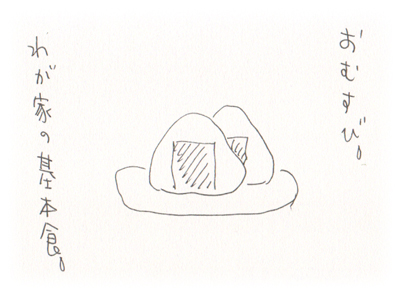 おむすび。
わが家の基本食。